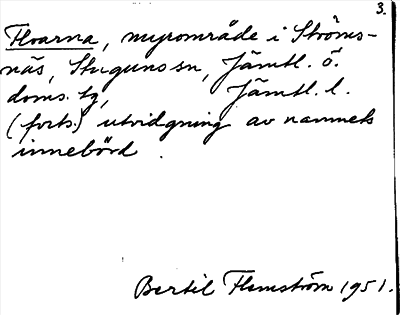 3.
Floarna, myrområde i Ströms-
näs, Stuguns sn, Jämtl. ö.
doms. tg, Jämtl. l.
(forts.) utvidgning av namnets
innebörd.
Bertil Flemström 1951.